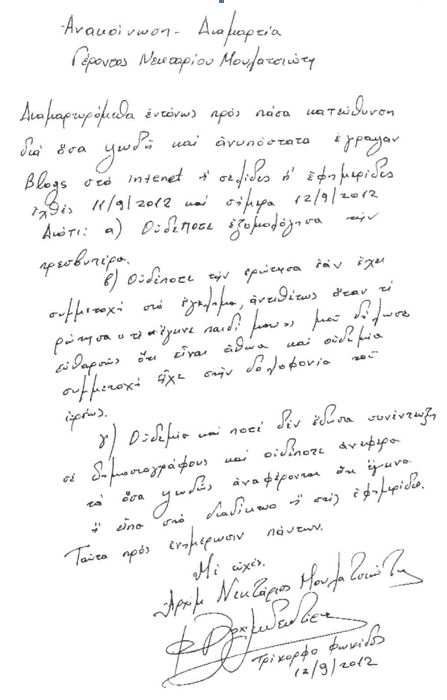 Ἀνακοίνωση - Διαμαρτία
Γέροντος Νεκταρίου Μουλατσιώτη
Διαμαρτυρόμεθα ἐντόνως πρός πᾶσα κατεύθυνση
διά ὅσα ψωδῆ καί ἀνυπόστατα ἔγραψαν
Blogs στό internet ἤ σελίδες ἤ ἐφημερίδες
ἐχθές 11/9/2012 καί σήμερα 12/9/2012
Διότι: α) Οὐδέποτε ἐξομολόγησα τήν
πρεσβυτέρα.
β) Οὐδέποτε τήν ἐρώτησα ἐάν ἔχει
συμμετοχή στό ἔγκλημα, ἀντιθέτως ὅταν τή
ρώτησα «τί ἔγινε παιδί μου;» μοῦ δήλωσε
εὐθαρσῶς ὅτι εἶναι ἀθώα καί οὐδεμία
συμμετοχή εἶχε στήν δολοφονία τοῦ
ἱερέως.
γ) Οὐδεμία καί ποτέ δέν ἔδωσα συνέντευξη
σέ δημοσιογράφους καί οὐδέποτε ἀνέφερα
τά ὅσα ψωδῶς ἀναφέρονται ὅτι ἔγιναν
ἤ εἶπα στό διαδίκτυο ἤ στίς ἐφημερίδες.
Ταῦτα πρός ἐνημέρωσιν πάντων.
Μέ εὐχές.
Ἀρχιμ Νεκτάριος Μουλατσιώτης
Τρίκορφο Φωκίδος
12/9/2012